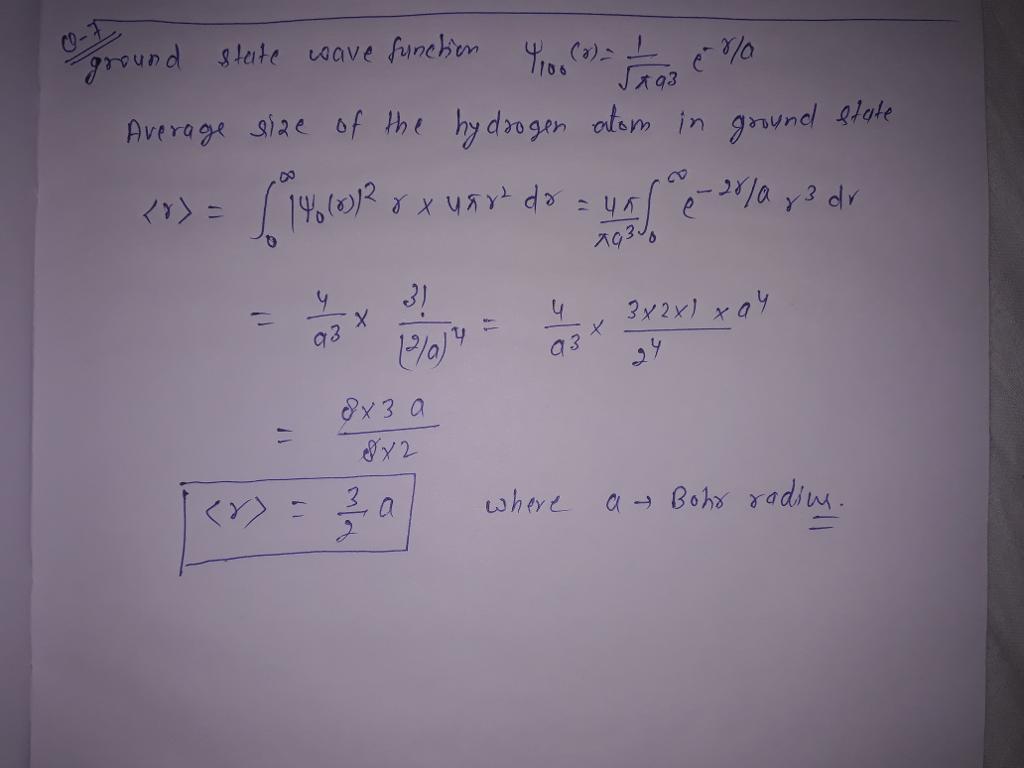 Q-7
ground state wave function ψ₁₀₀(r) = 1/√πa³ e^-r/a
Average size of the hydrogen atom in ground state
<r> = ∫₀^∞ |ψ₀(r)|² r x 4πr² dr = 4π/πa³ ∫₀^∞ e^-2r/a r³ dr
= 4/a³ x 3!/(2/a)⁴ = 4/a³ x 3x2x1 x a⁴/2⁴
= 8x3 a/8x2
<r> = 3/2 a where a → Bohr radius.